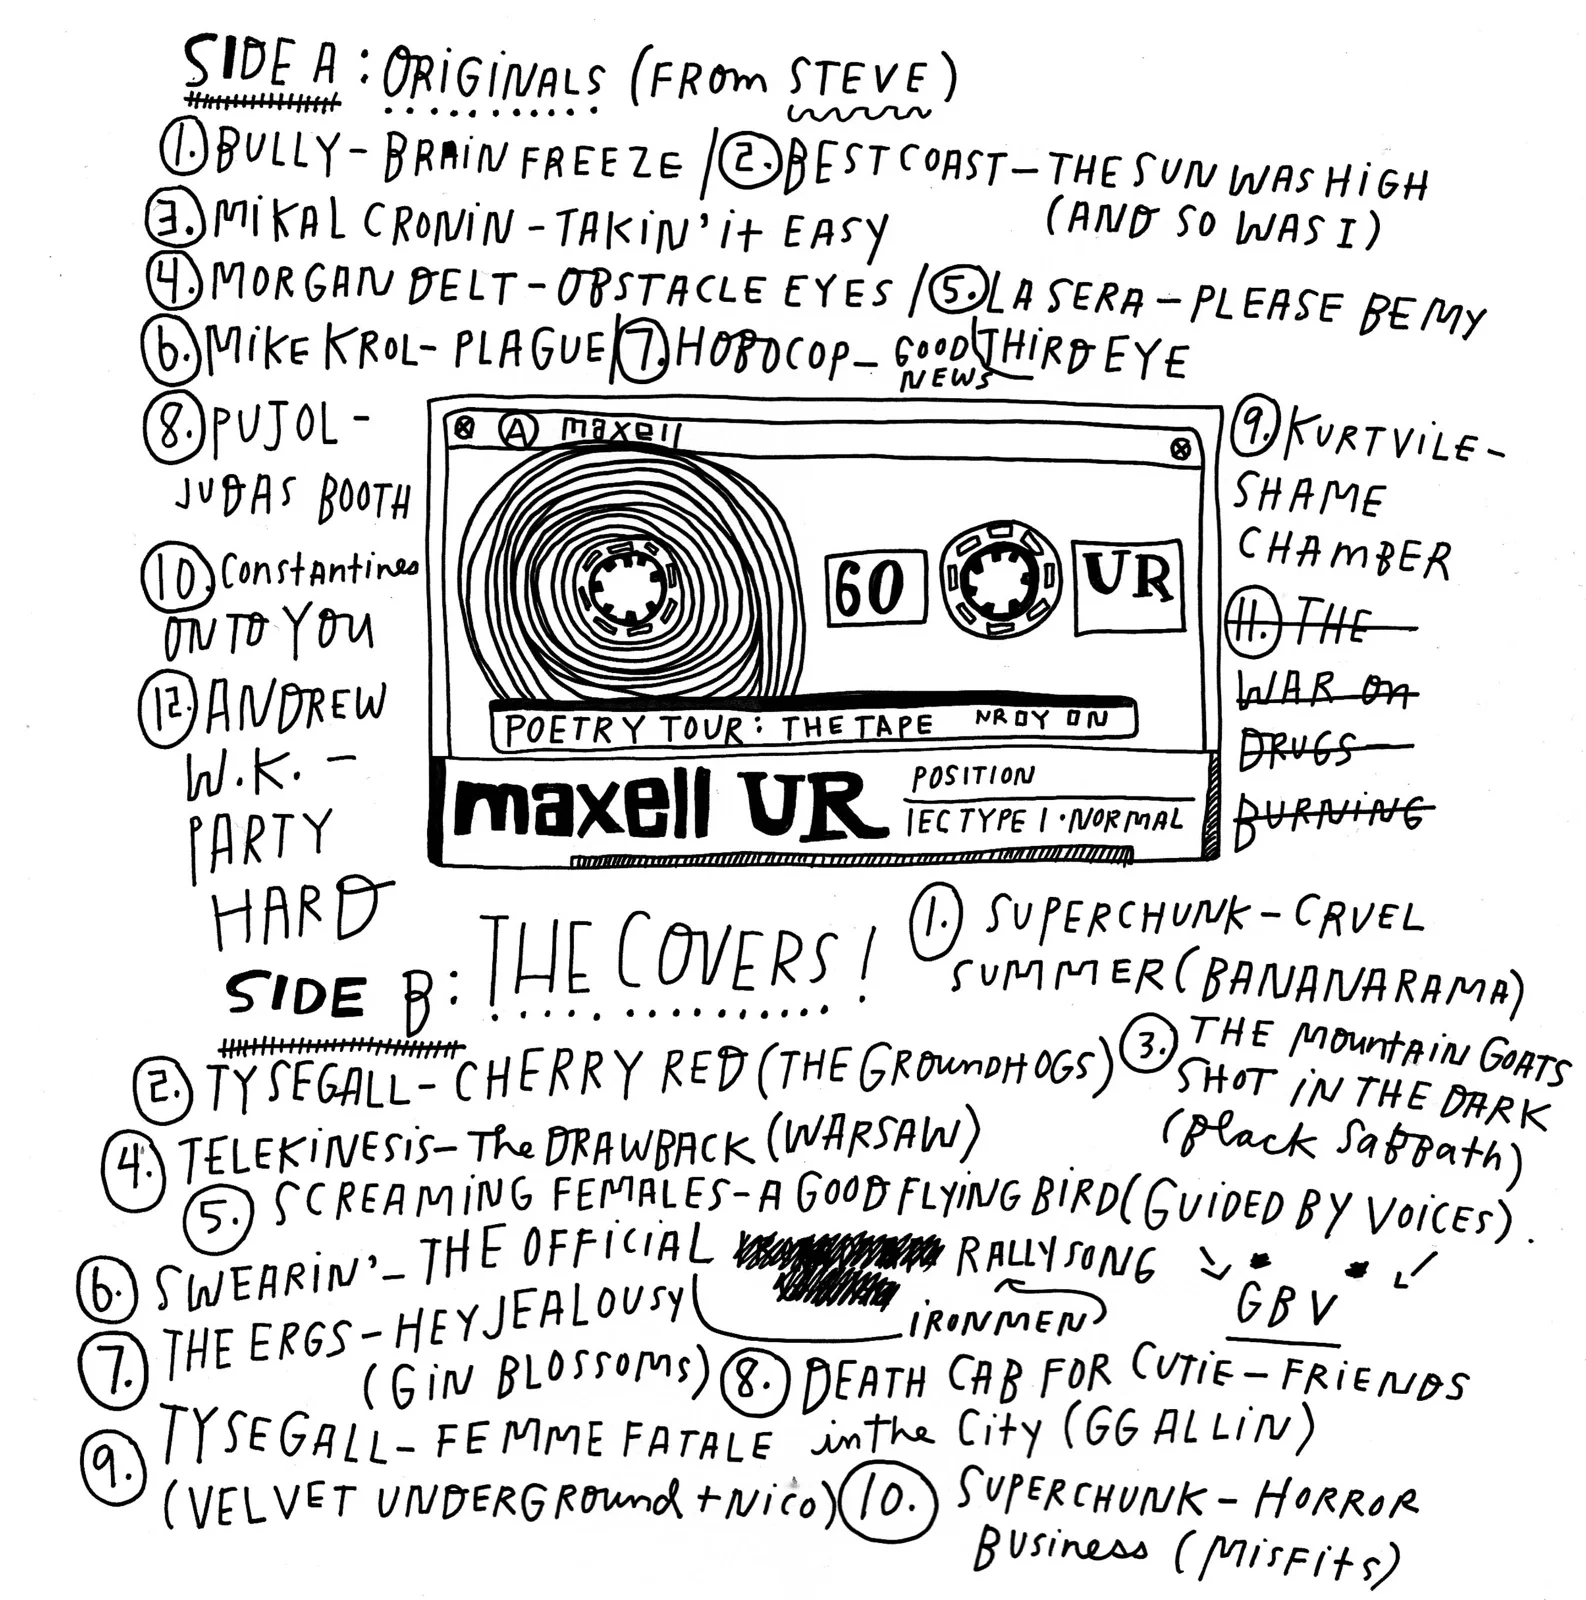 SIDE A: ORIGINALS (FROM STEVE)
1. BULLY - BRAIN FREEZE / 2. BEST COAST - THE SUN WAS HIGH
(AND SO WAS I)
3. MIKAL CRONIN - TAKIN' it EASY
4. MORGAN DELT - OBSTACLE EYES / 5. LA SERA - PLEASE BE MY
THIRD EYE
6. MIKE KROL - PLAGUE / 7. HOBOCOP - GOOD
NEWS
8. PUJOL -
JUDAS BOOTH
9. KURT VILE -
SHAME
CHAMBER
10. Constantines
ON TO YOU
11. THE
WAR ON
DRUGS
BURNING
12. ANDREW
W.K. -
PARTY
HARD
A maxell
60
UR
POETRY TOUR: THE TAPE NR DY ON
maxell UR
POSITION
IEC TYPE I · NORMAL
SIDE B: THE COVERS!
1. SUPERCHUNK - CRUEL
SUMMER (BANANARAMA)
2. TY SEGALL - CHERRY RED (THE GROUNDHOGS)
3. THE MOUNTAIN GOATS
SHOT IN THE DARK
(Black Sabbath)
4. TELEKINESIS - The DRAWBACK (WARSAW)
5. SCREAMING FEMALES - A GOOD FLYING BIRD (GUIDED BY VOICES).
6. SWEARIN' - THE OFFICIAL RALLY SONG
IRONMEN
GBV
7. THE ERGS - HEY JEALOUSY
(GIN BLOSSOMS)
8. DEATH CAB FOR CUTIE - FRIENDS
in the City (GG ALLIN)
9. TY SEGALL - FEMME FATALE
(VELVET UNDERGROUND + NICO)
10. SUPERCHUNK - HORROR
BUSINESS (MISFITS)